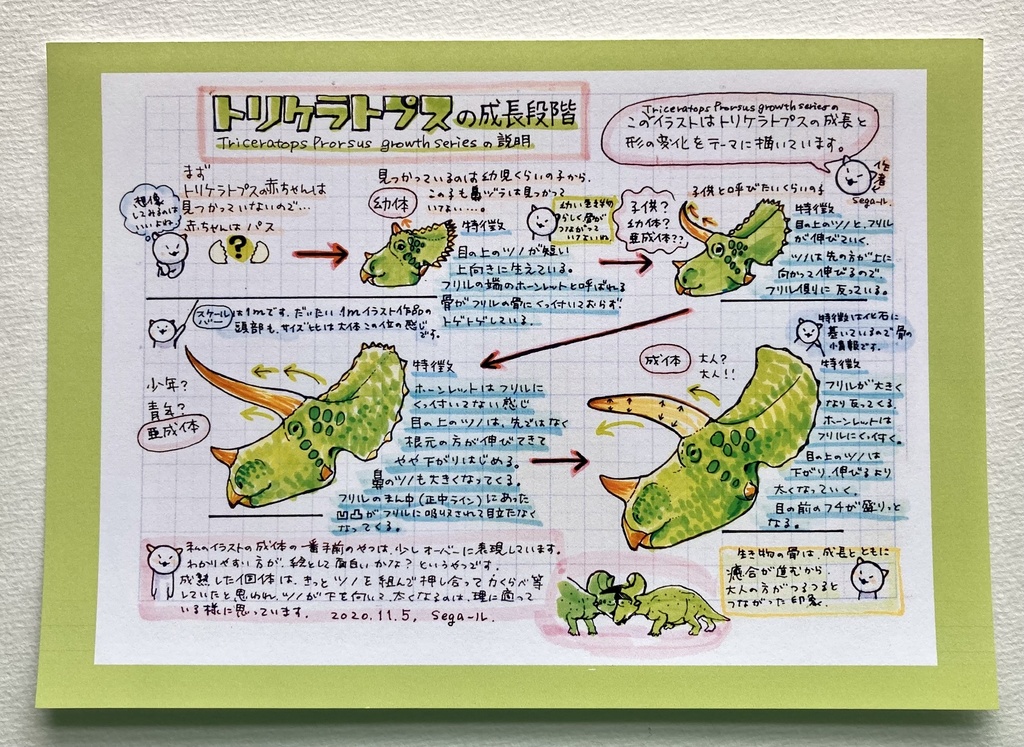 トリケラトプスの成長段階
Triceratops Prorsus growth seriesの説明
Triceratops Prorsus growth seriesの
このイラストはトリケラトプスの成長と
形の変化をテーマに描いています。
作者
Sega-ル.
想像
してみるのは
いいよね
まず
トリケラトプスの赤ちゃんは
見つかっていないので…
赤ちゃんは パス
?
見つかっているのは幼児くらいの子から.
この子も鼻ヅラは見つかって
いけない….
幼体
特徴
目の上のツノが短い
上向きに生えている。
フリルの端のホーンレットと呼ばれる
骨がフリルの骨にくっ付いておらず
トゲトゲしている.
幼い生き物
らしく骨が
つながって
いけないね
子供?
幼体?
亜成体??
子供と呼びたいくらいの子
特徴
目の上のツノと、フリル
が伸びていく.
ツノは先の方が上に
向かって伸びるので
フリル側りに反っている。
スケール
バー
は1mです. だいたい1mイラスト作品の
頭部も、サイズ比は大体この位の感じ
です.
少年?
青年?
亜成体
特徴
ホーンレットはフリルに
くっ付いてない感じ
目の上のツノは、先ではなく
根元の方が伸びてきて
やや下がりはじめる.
鼻のツノも大きくなってくる.
フリルのまん中(正中ライン)にあった
凹凸がフリルに吸収されて目立たなく
なってくる.
成体
大人?
大人!!
特徴は化石に
基いているので骨の
情報です.
特徴
フリルが大きく
なり反ってくる.
ホーンレットは
フリルにくっ付く.
目の上のツノは
下がり、伸びるより
太くなっていく.
目の前のフチが盛りっと
なる.
私のイラストの成体の一番手前のやつは、少しオーバーに表現しています.
わかりやすい方が、絵として面白いかな? というやつです.
成熟した個体は、きっとツノを組んで押し合って力くらべ等
していたと思われ、ツノが下を向いて、太くなるのは、理に適って
いる様に思っています. 2020.11.5, Sega-ル.
生き物の骨は、成長とともに
癒合が進むから
大人の方がつるつると
つながった印象.